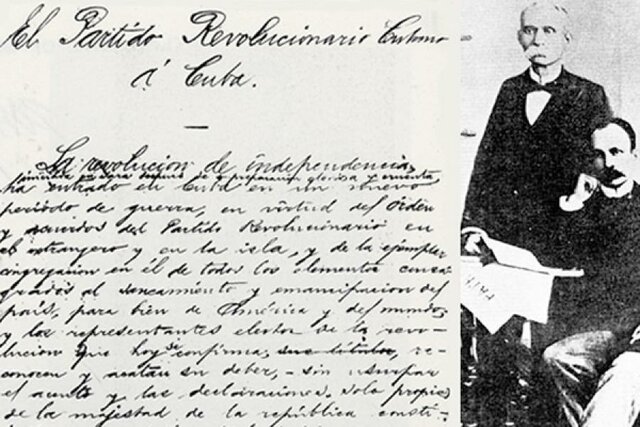 El Partido Revolucionario Cubano
á Cuba.
La revolucion de independencia,
iniciada en Yara despues de preparacion gloriosa y cruenta,
ha entrado en Cuba en un nuevo
periodo de guerra, en virtud del orden
y acuerdos del Partido Revolucionario en
el extrangero y en la isla, y de la ejemplar
congregacion en él de todos los elementos consa-
grados al saneamiento y emancipacion del
país, para bien de América y del mundo;
y los representantes electos de la revo-
lucion que hoy se confirma, re-
conocen y acatan su deber, - sin usurpar
el acento y las declaraciones solo propias
de la majestad de la república consti-